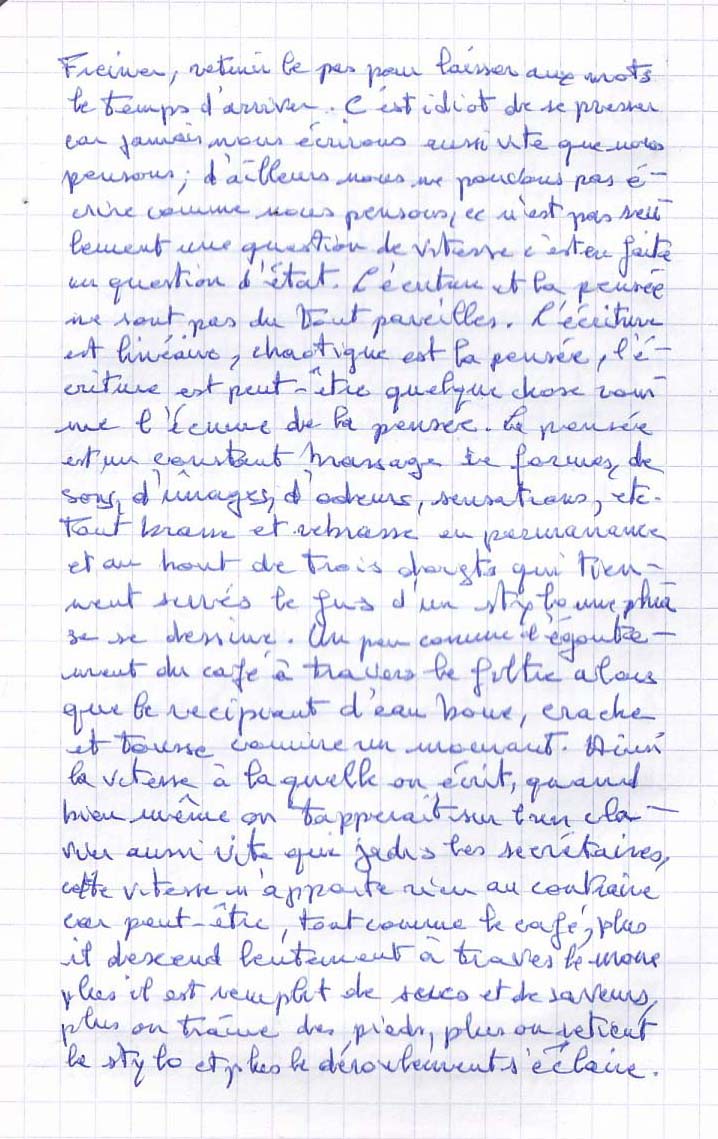 Freiner, retenir le pas pour laisser aux mots
le temps d'arriver. C'est idiot de se presser
car jamais nous écrirons aussi vite que nous
pensons; d'ailleurs nous ne pouvons pas é-
crire comme nous pensons, ce n'est pas seu
lement une question de vitesse c'est en faite
un question d'état. L'écriture et la pensée
ne sont pas du tout pareilles. L'écriture
est linéaire, chaotique est la pensée, l'é-
criture est peut-être quelque chose com
me l'écume de la pensée. La pensée
est un constant brassage de formes, de
sons, d'images, d'odeurs, sensations, etc.
Tout brasse et rebrasse en permanance
et au bout de trois doigts qui tien-
nent serrés le fus d'un stylo une phra
se se dessine. Un peu comme l'égoutte-
ment du café à travers le filtre alors
que le recipient d'eau boue, crache
et tousse comme un mourant. Ainsi
la vitesse à laquelle on écrit, quand
bien même on tapperait sur bien cla-
vier aussi vite que jadis les secrétaires,
cette vitesse n'apporte rien au contraire
car peut-être, tout comme le café, plus
il descend lentement à travers le
plus il est remplit de sucs et de saveurs,
plus on traine des pieds, plus on retient
le stylo et plus le déroulement s'éclaire.